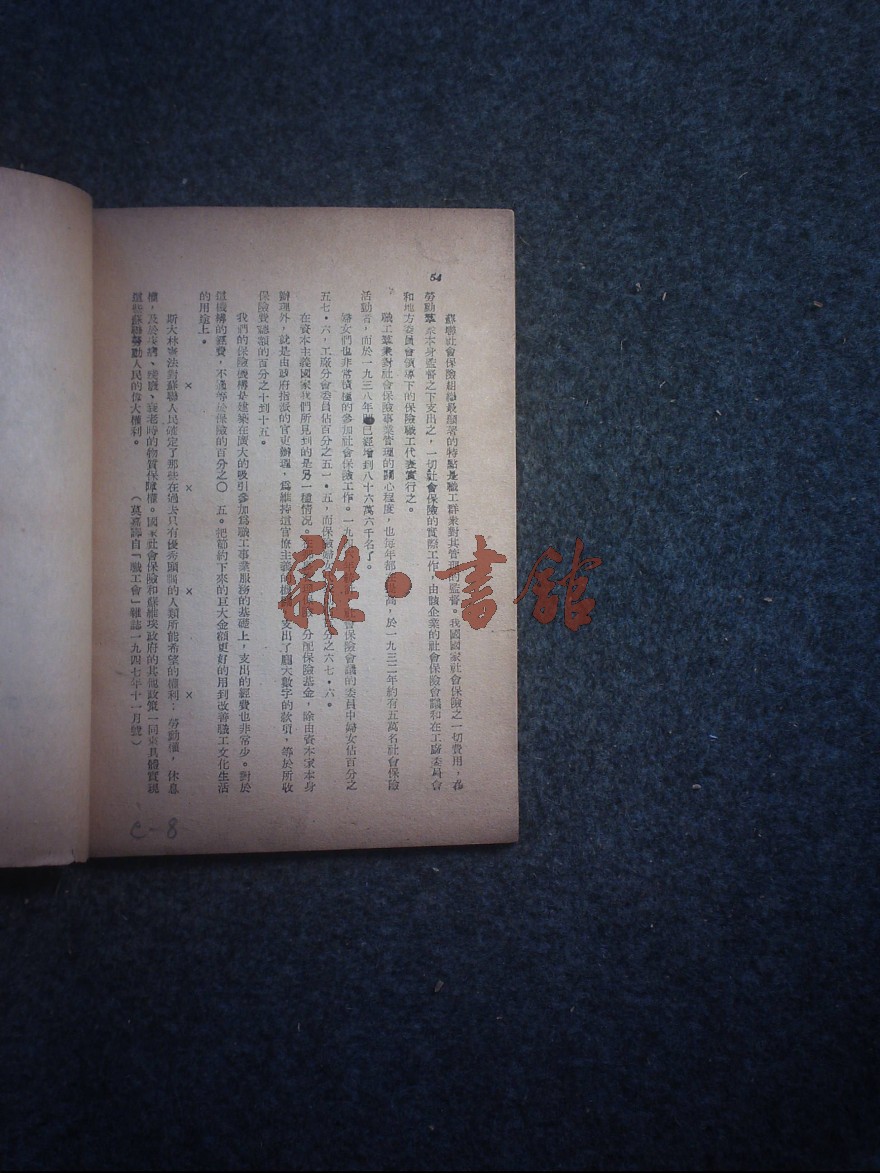 54
蘇聯社會保險組織最顯著的特點是職工群衆對其管理的監督。我國國家社會保險之一切費用，在
勞動羣衆本身監督之下支出之，一切社會保險的實際工作，由該企業的社會保險會議和在工廠委員會
和地方委員會領導下的保險職工代表實行之。
職工羣衆對社會保險事業管理的關心程度，也每年都在 高，於一九三二年約有五萬名社會保險
活動者，而於一九三八年 已經增到八十六萬六千名了。
婦女們也非常積極的參加社會保險工作。一九 會保險會議的委員中婦女佔百分之
五七·六，工廠分會委員佔百分之五一·五，而保險 婦女 分之六七·六。
在資本主義國家我們所見到的是另一種情況。 分配保險基金，除由資本家本身
辦理外，就是由政府指派的官吏辦理，爲維持這官僚主義的機 支出了龐大數字的款項，等於所收
保險費總額的百分之十到十五。
我們的保險機構是建築在廣大的吸引參加爲職工事業服務的基礎上，支出的經費也非常少。對於
這機構的經費，不過等於保險的百分之〇 五。把節約下來的巨大金額更好的用到改善職工文化生活
的用途上。
× × × ×
斯大林憲法對蘇聯人民確定了那些在過去只有優秀頭腦的人類所能希望的權利：勞動權，休息
權，及於疾病、殘廢、衰老時的物質保障權。國家社會保險和蘇維埃政府的其他政策一同來具體實現
這些蘇聯勞動人民的偉大權利。
（莫嘉 自「職工會」雜誌一九四七年十一月號）
C-8
雜·書館